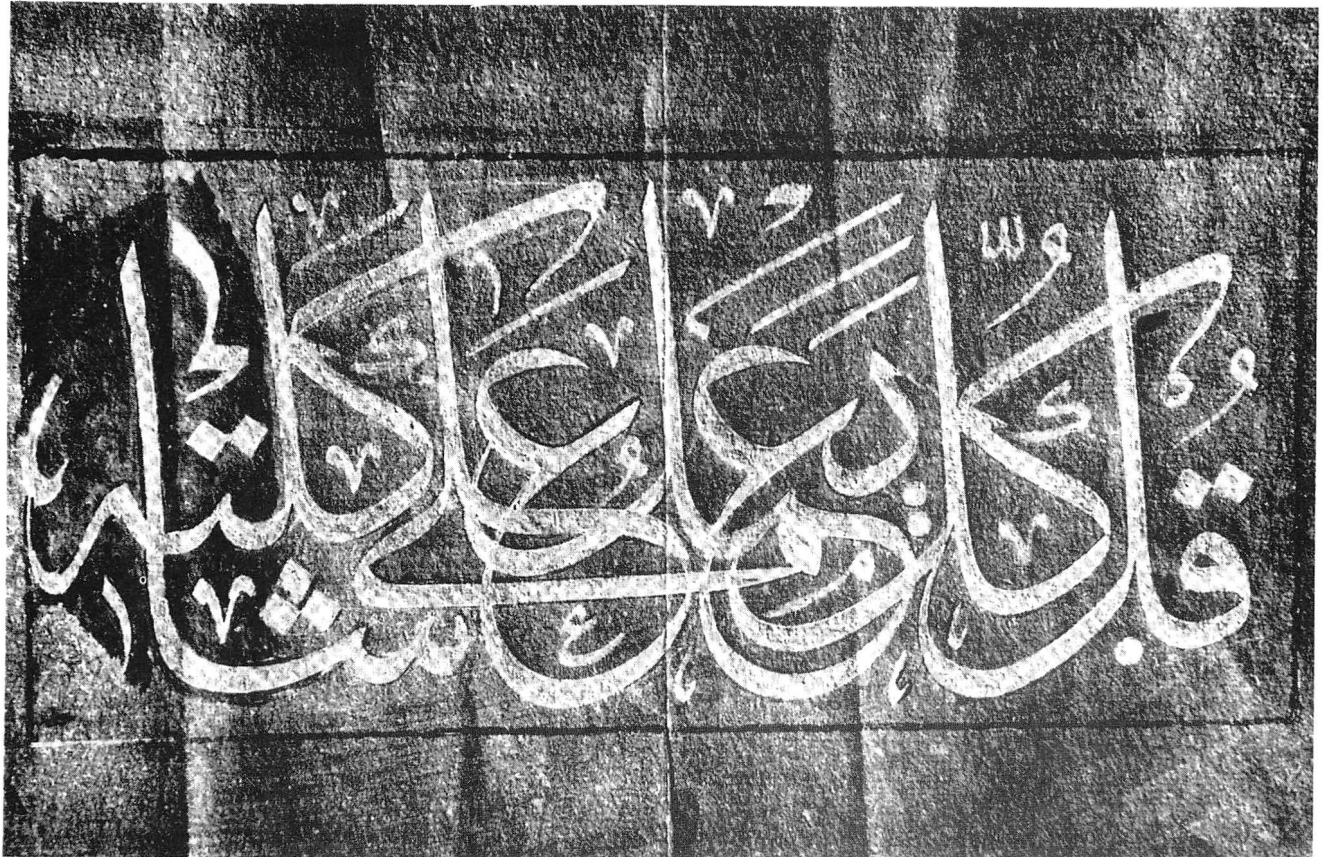 قُلْ كُلٌّ يَعْمَلُ عَلَى شَاكِلَتِهِ